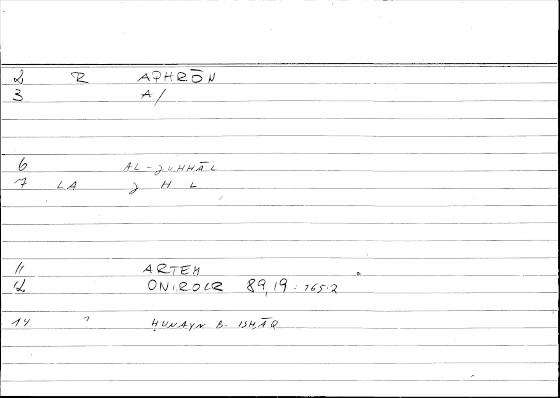 2 R APHRŌN
3 A/
6 AL-JUHHĀL
7 LA J H L
11 ARTEM
12 ONIROCR 89,19 : 165.2
14 ? ḤUNAYN B. ISḤĀQ